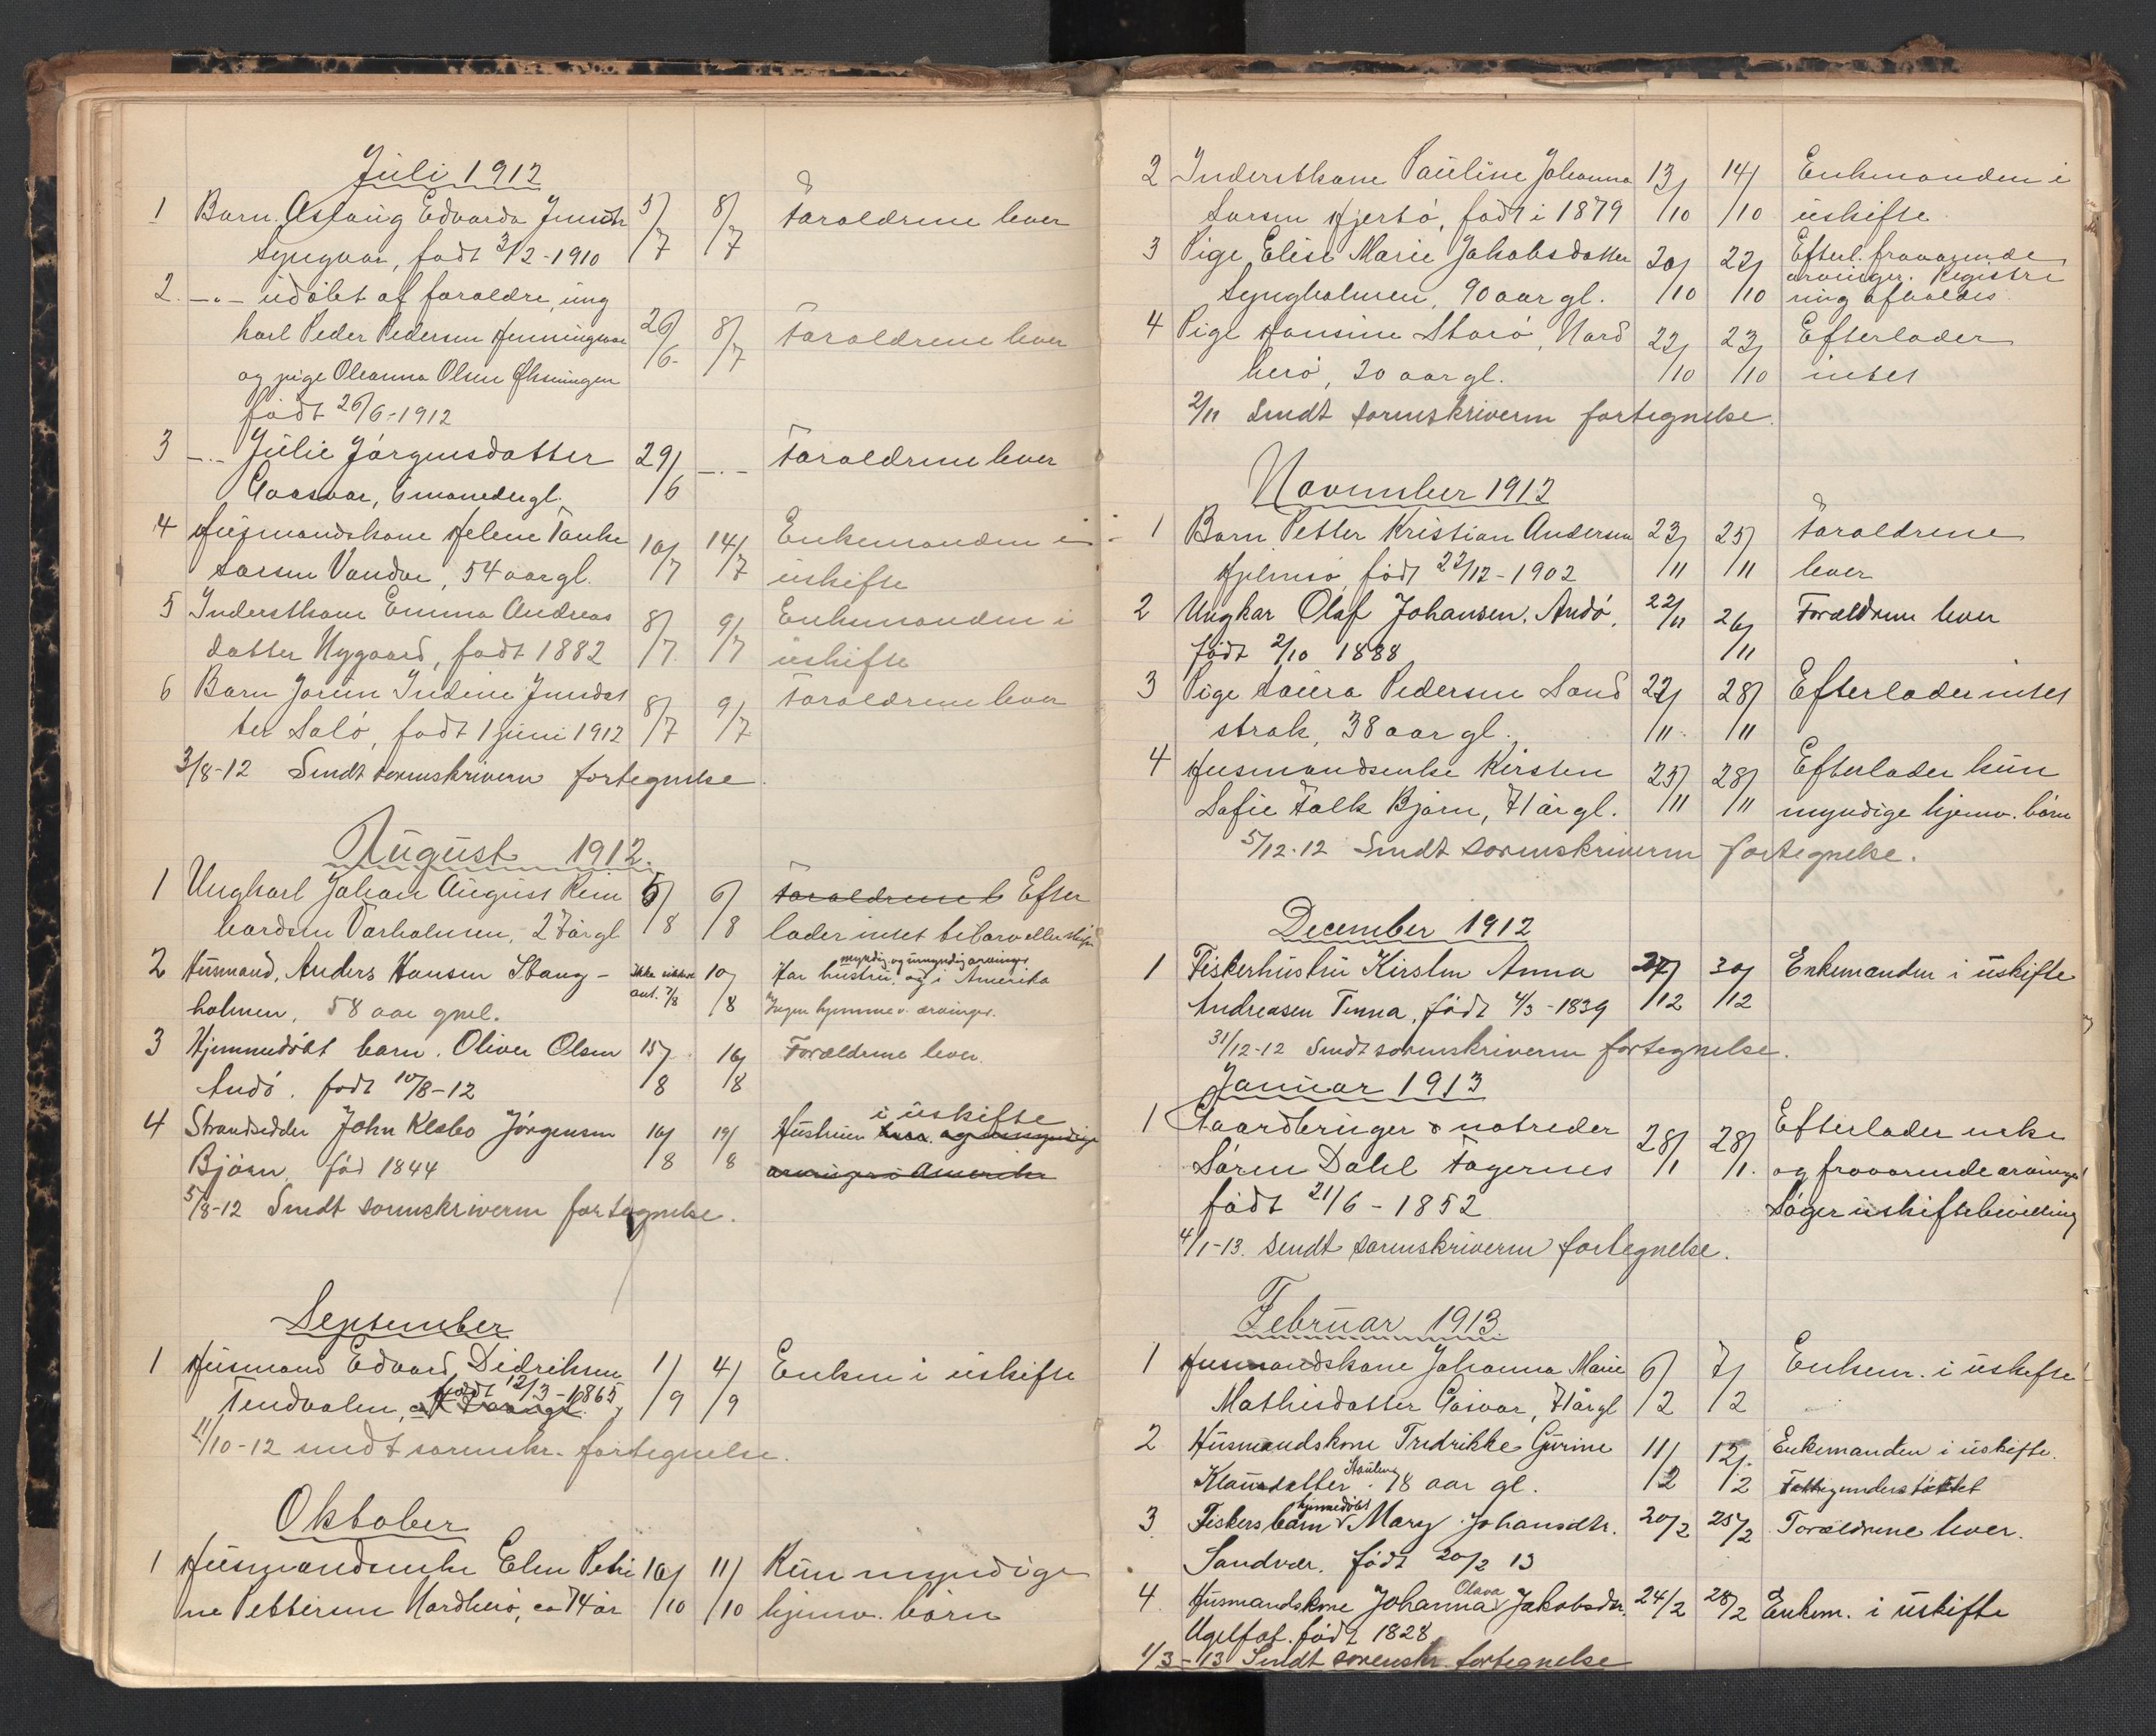 Juli 1912
1 Barn Aslaug Edvarda Jensdtr 5/7 8/7 Forældrene lever
Lyngvær, født 3/2-1910
2. -"- udøbt af forældre, ung
karl Peder Pedersen Henningvær 26/6 8/7 Forældrene lever
og pige Oleanna Olsen Øksningen
født 26/6-1912
3 -"- Julie Jørgensdatter 29/6 -"- Forældrene lever
Gaasvær, 6 maneder gl.
4 Husmandskone Helene Tanke 10/7 14/7 Enkemanden i
Larsen Vandve, 54 aar gl. uskifte
5 Inderstkone Emma Andreas 8/7 9/7 Enkemanden i
datter Nygaard, født 1882 uskifte
6 Barn Jorun Indine Jensdat 8/7 9/7 Forældrene lever
ter Salø, født 1 juni 1912
3/8-12 Sendt sorenskriveren fortegnelse.
August 1912.
1 Ungkarl Johan August Rein 5/8 6/8 Forældrene l Efter
hardsen Varholmen, 27 år gl lader intet til arv eller skifte
2 Husmand, Anders Hansen Stang- ikke sikkert ant. 7/8 10/8 Har hustru, myndig og umyndig arvinger og i Amerika
holmen, 58 aar gml. Ingen hjemmev. arvinger.
3 Hjemmedøbt barn. Oliver Olsen 15/8 16/8 Forældrene lever.
Andø. født 10/8-12
4 Strandsidder John Klebo Jørgensen 16/8 19/8 Hustruen i uskifte
Bjørn, fød 1844 arvinger i Amerika
5/8-12 Sendt sorenskriveren fortegnelse.
September
1 Husmand Edvard Didriksen 1/9 4/9 Enken i uskifte
Tendvalen, født 12/3-1865
11/10-12 sendt sorenskr. fortegnelse.
Oktober
1 Husmandsenke Elen Petri 10/10 11/10 Kun myndige
ne Pettersen Nordherø, ca 74 år hjemv. børn
2 Inderstkone Pauline Johanna 13/10 14/10 Enkemanden i
Larsen Hjertø, født i 1879 uskifte
3 Pige Elise Marie Jakobsdatter 20/10 22/10 Efterl. fraværende
Lyngholmen, 90 aar gl. arvinger. Registre
ring afholdes.
4 Pige Hansine Storø, Nord 22/10 23/10 Efterlader
herø, 20 aar gl. intet
2/11 Sendt sorenskriveren fortegnelse.
November 1912
1 Barn Petter Kristian Andersen 23/11 25/11 Forældrene
Hjelmsø, født 22/12-1902 lever
2 Ungkar Olaf Johansen. Andø. 22/11 26/11 Forældrene lever
født 2/10 1888
3 Pige Laura Pedersen Sand 22/11 28/11 Efterlader intet
strak, 38 aar gl.
4 Husmandsenke Kirsten 25/11 28/11 Efterlader kun
Sofie Falk Bjørn, 71 år gl. myndige hjemv. børn
5/12-12 Sendt sorenskriveren fortegnelse.
December 1912
1 Fiskerhustru Kirsten Anna 27/12 30/12 Enkemanden i uskifte
Andreasen Tenna, født 4/3-1839
31/12-12 Sendt sorenskriveren fortegnelse.
Januar 1913
1 Gaardbruger & notreder 28/1 28/1. Efterlader enke
Søren Dahl Fagernes og fraværende arvinger
født 21/6-1852 Søger uskiftebevilling
4/1-13. Sendt sorenskriveren fortegnelse.
Februar 1913.
1 Husmandskone Johanna Marie 6/2 7/2 Enkem. i uskifte
Mathisdatter Gåsvær, 71 år gl
2 Husmandskone Fredrikke Gurine 11/2 12/2 Enkemanden i uskifte.
Klausdatter Stauleng. 78 aar gl. Fattigunderstøttet
3. Fiskersbarn hjemmedøbt Mary Johansdtr. 20/2 25/2 Forældrene lever.
Sandvær. født 20/2 13
4. Husmandskone Johanna Olava Jakobsdtr. 24/2 28/2 Enkem. i uskifte
Ugelfat. født 1828
1/3-13 Sendt sorenskr. fortegnelse